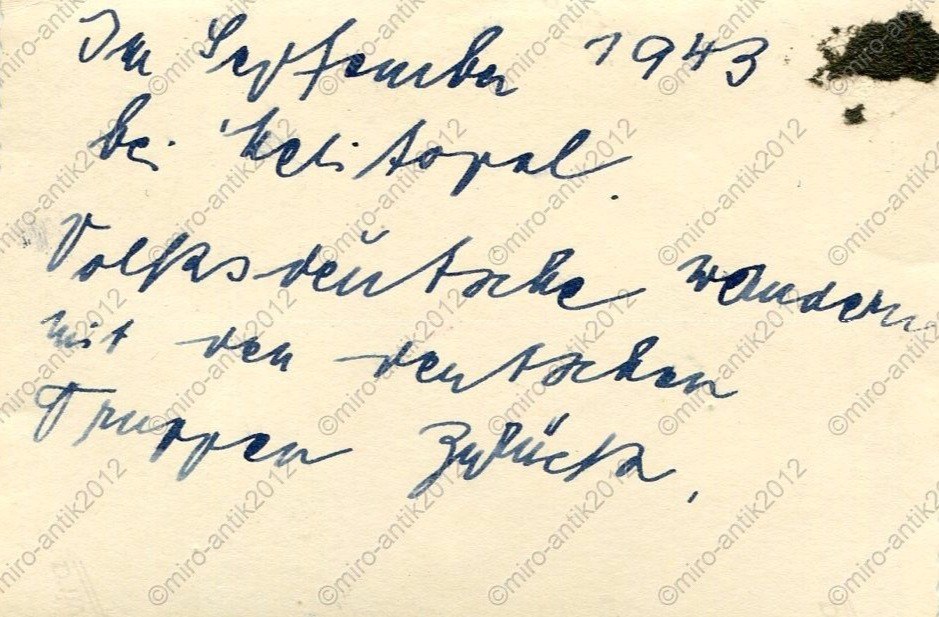 Im September 1943
bei Melitopol.
Volksdeutsche wandern
mit den deutschen
Truppen zurück.
©miro-antik2012